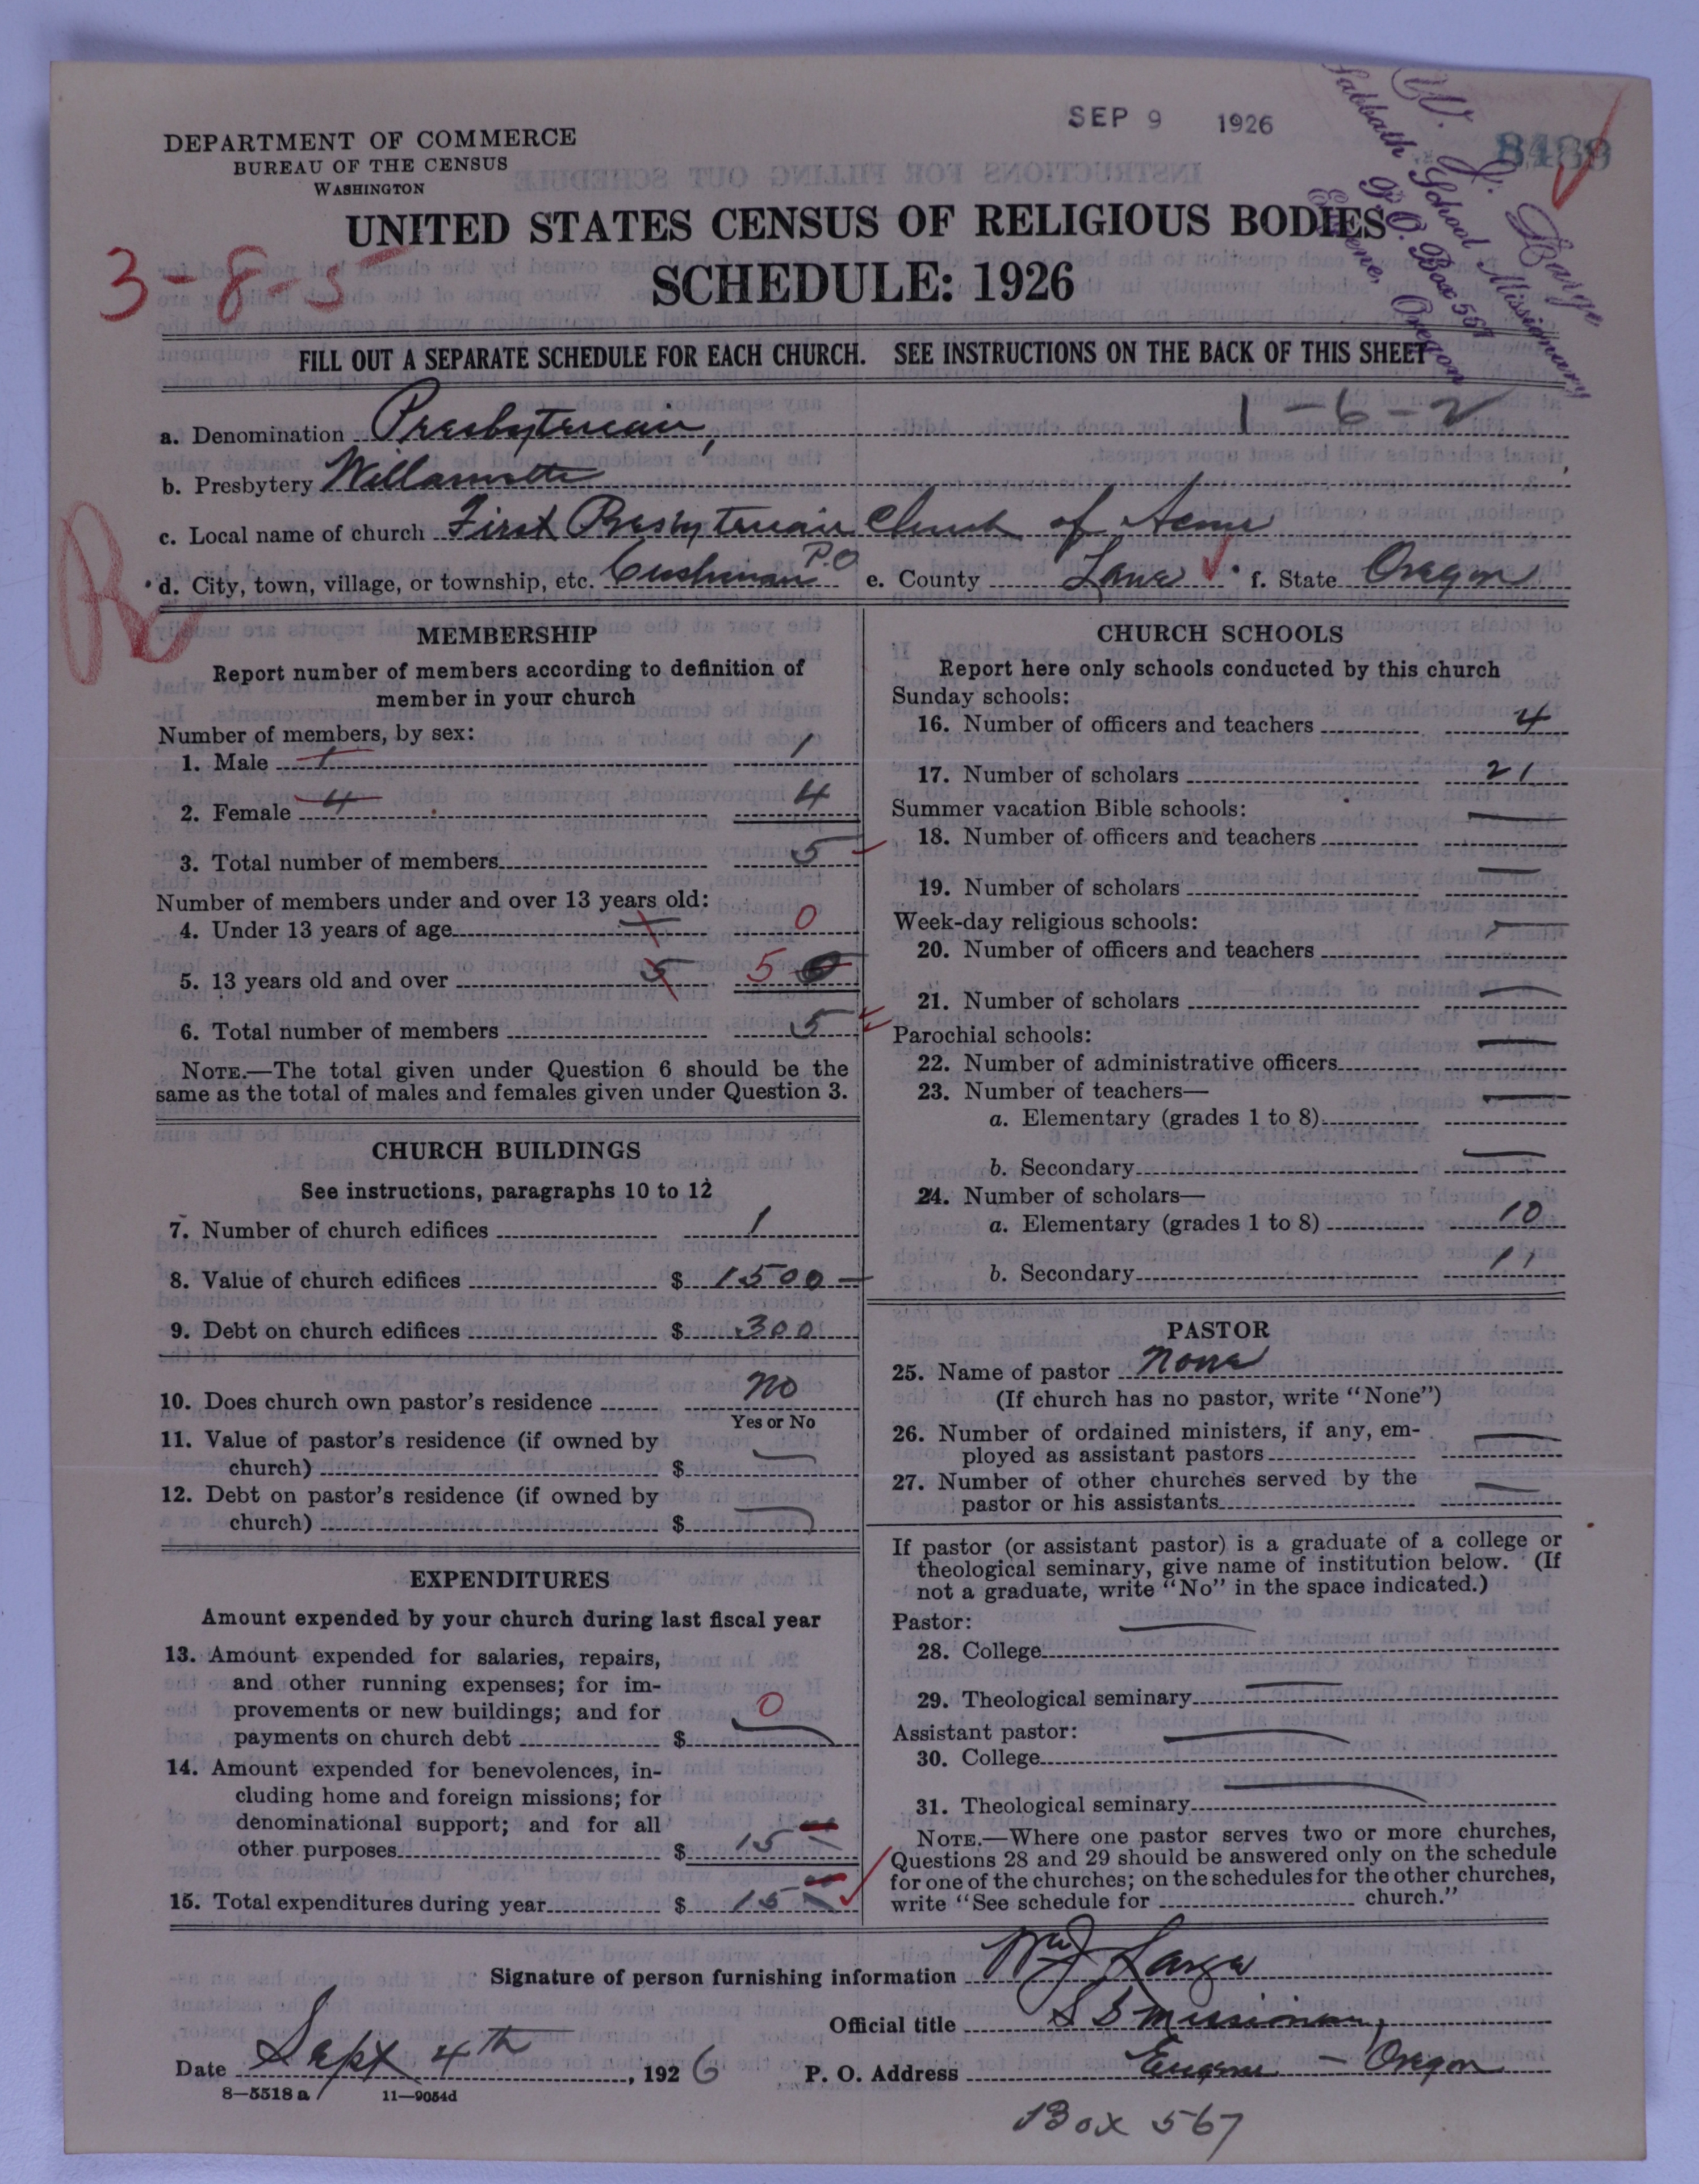 SEP 9 1926
DEPARTMENT OF COMMERCE
BUREAU OF THE CENSUS
WASHINGTON
W. J. Large
Sabbath School Missionary
P. O. Box 567
Eugene, Oregon
UNITED STATES CENSUS OF RELIGIOUS BODIES
3-8-5
SCHEDULE: 1926
FILL OUT A SEPARATE SCHEDULE FOR EACH CHURCH. SEE INSTRUCTIONS ON THE BACK OF THIS SHEET
1-6-2
a. Denomination Presbyterian,
b. Presbytery Willamette
c. Local name of church First Presbyterian Church of Acme
d. City, town, village, or township, etc. Cushman P.O e. County Lane f. State Oregon
MEMBERSHIP
Report number of members according to definition of
member in your church
Number of members, by sex:
1. Male 1 1
2. Female 4 4
3. Total number of members 5
Number of members under and over 13 years old:
4. Under 13 years of age 0
5. 13 years old and over 5 5
6. Total number of members 5
NOTE.—The total given under Question 6 should be the
same as the total of males and females given under Question 3.
CHURCH BUILDINGS
See instructions, paragraphs 10 to 12
7. Number of church edifices 1
8. Value of church edifices $ 1500 —
9. Debt on church edifices $ 300
10. Does church own pastor's residence no
Yes or No
11. Value of pastor's residence (if owned by
church) $ —
12. Debt on pastor's residence (if owned by
church) $ —
EXPENDITURES
Amount expended by your church during last fiscal year
13. Amount expended for salaries, repairs,
and other running expenses; for im-
provements or new buildings; and for
payments on church debt $ 0
14. Amount expended for benevolences, in-
cluding home and foreign missions; for
denominational support; and for all
other purposes $ 15
15. Total expenditures during year $ 15
CHURCH SCHOOLS
Report here only schools conducted by this church
Sunday schools:
16. Number of officers and teachers 4
17. Number of scholars 21
Summer vacation Bible schools:
18. Number of officers and teachers —
19. Number of scholars —
Week-day religious schools:
20. Number of officers and teachers —
21. Number of scholars —
Parochial schools:
22. Number of administrative officers —
23. Number of teachers—
a. Elementary (grades 1 to 8) —
b. Secondary —
24. Number of scholars—
a. Elementary (grades 1 to 8) 10
b. Secondary 11
PASTOR
25. Name of pastor None
(If church has no pastor, write "None")
26. Number of ordained ministers, if any, em-
ployed as assistant pastors —
27. Number of other churches served by the
pastor or his assistants —
If pastor (or assistant pastor) is a graduate of a college or
theological seminary, give name of institution below. (If
not a graduate, write "No" in the space indicated.)
Pastor:
28. College —
29. Theological seminary —
Assistant pastor:
30. College —
31. Theological seminary —
NOTE.—Where one pastor serves two or more churches,
Questions 28 and 29 should be answered only on the schedule
for one of the churches; on the schedules for the other churches,
write "See schedule for church."
Signature of person furnishing information Wm J Large
Official title S S Missionary,
Date Sept 4th, 1926 P. O. Address Eugene — Oregon
8-5518 a 11-9054d
Box 567